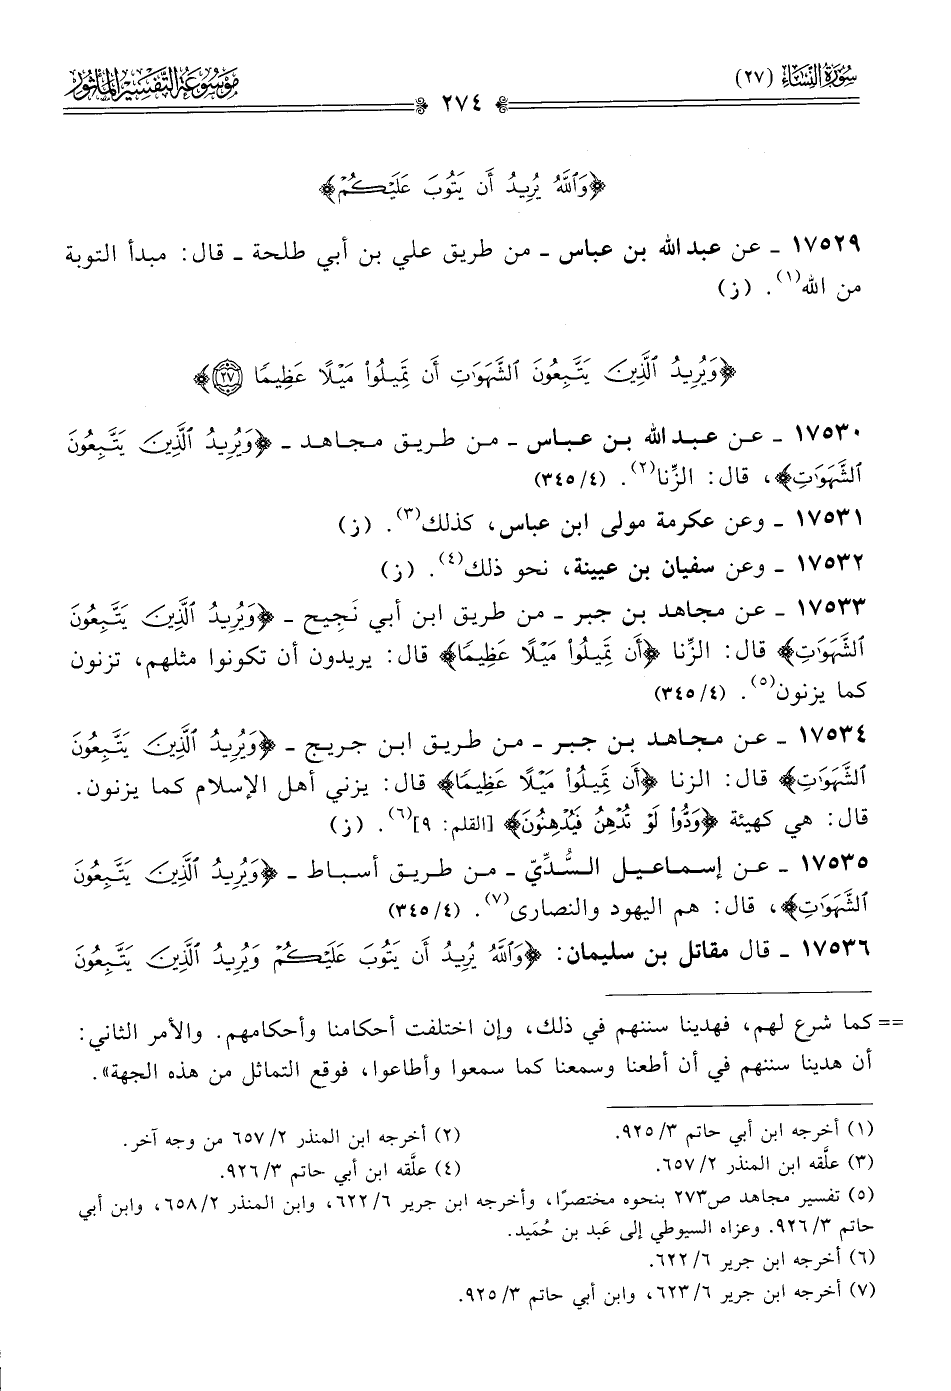 سُورَةُ النِّسَاءِ (٢٧)
موسوعة التفسير المأثور
٢٧٤
﴿وَٱللَّهُ يُرِيدُ أَن يَتُوبَ عَلَيْكُمْ﴾
١٧٥٢٩ ـ عن عبد الله بن عباس ـ من طريق علي بن أبي طلحة ـ قال: مبدأ التوبة
من الله(١). (ز)
﴿وَيُرِيدُ ٱلَّذِينَ يَتَّبِعُونَ ٱلشَّهَوَٰتِ أَن تَمِيلُوا۟ مَيْلًا عَظِيمًا ٢٧﴾
١٧٥٣٠ ـ عن عبد الله بن عباس ـ من طريق مجاهد ـ ﴿وَيُرِيدُ ٱلَّذِينَ يَتَّبِعُونَ
ٱلشَّهَوَٰتِ﴾، قال: الزِّنا(٢). (٣٤٥/٤)
١٧٥٣١ ـ وعن عكرمة مولى ابن عباس، كذلك(٣). (ز)
١٧٥٣٢ ـ وعن سفيان بن عيينة، نحو ذلك(٤). (ز)
١٧٥٣٣ ـ عن مجاهد بن جبر ـ من طريق ابن أبي نَجيح ـ ﴿وَيُرِيدُ ٱلَّذِينَ يَتَّبِعُونَ
ٱلشَّهَوَٰتِ﴾ قال: الزِّنا ﴿أَن تَمِيلُوا۟ مَيْلًا عَظِيمًا﴾ قال: يريدون أن تكونوا مثلهم، تزنون
كما يزنون(٥). (٣٤٥/٤)
١٧٥٣٤ ـ عن مجاهد بن جبر ـ من طريق ابن جريج ـ ﴿وَيُرِيدُ ٱلَّذِينَ يَتَّبِعُونَ
ٱلشَّهَوَٰتِ﴾ قال: الزنا ﴿أَن تَمِيلُوا۟ مَيْلًا عَظِيمًا﴾ قال: يزني أهل الإسلام كما يزنون.
قال: هي كهيئة ﴿وَدُّوا۟ لَوْ تُدْهِنُ فَيُدْهِنُونَ﴾ [القلم: ٩](٦). (ز)
١٧٥٣٥ ـ عن إسماعيل السُّدِّيّ ـ من طريق أسباط ـ ﴿وَيُرِيدُ ٱلَّذِينَ يَتَّبِعُونَ
ٱلشَّهَوَٰتِ﴾، قال: هم اليهود والنصارى(٧). (٣٤٥/٤)
١٧٥٣٦ ـ قال مقاتل بن سليمان: ﴿وَٱللَّهُ يُرِيدُ أَن يَتُوبَ عَلَيْكُمْ وَيُرِيدُ ٱلَّذِينَ يَتَّبِعُونَ
== كما شرع لهم، فهدينا سننهم في ذلك، وإن اختلفت أحكامنا وأحكامهم. والأمر الثاني:
أن هدينا سننهم في أن أطعنا وسمعنا كما سمعوا وأطاعوا، فوقع التماثل من هذه الجهة».
(١) أخرجه ابن أبي حاتم ٣/ ٩٢٥. (٢) أخرجه ابن المنذر ٢/ ٦٥٧ من وجه آخر.
(٣) علَّقه ابن المنذر ٢/ ٦٥٧. (٤) علَّقه ابن أبي حاتم ٣/ ٩٢٦.
(٥) تفسير مجاهد ص٢٧٣ بنحوه مختصرًا، وأخرجه ابن جرير ٦/ ٦٢٢، وابن المنذر ٢/ ٦٥٨، وابن أبي
حاتم ٣/ ٩٢٦. وعزاه السيوطي إلى عَبد بن حُمَيد.
(٦) أخرجه ابن جرير ٦/ ٦٢٢.
(٧) أخرجه ابن جرير ٦/ ٦٢٣، وابن أبي حاتم ٣/ ٩٢٥.